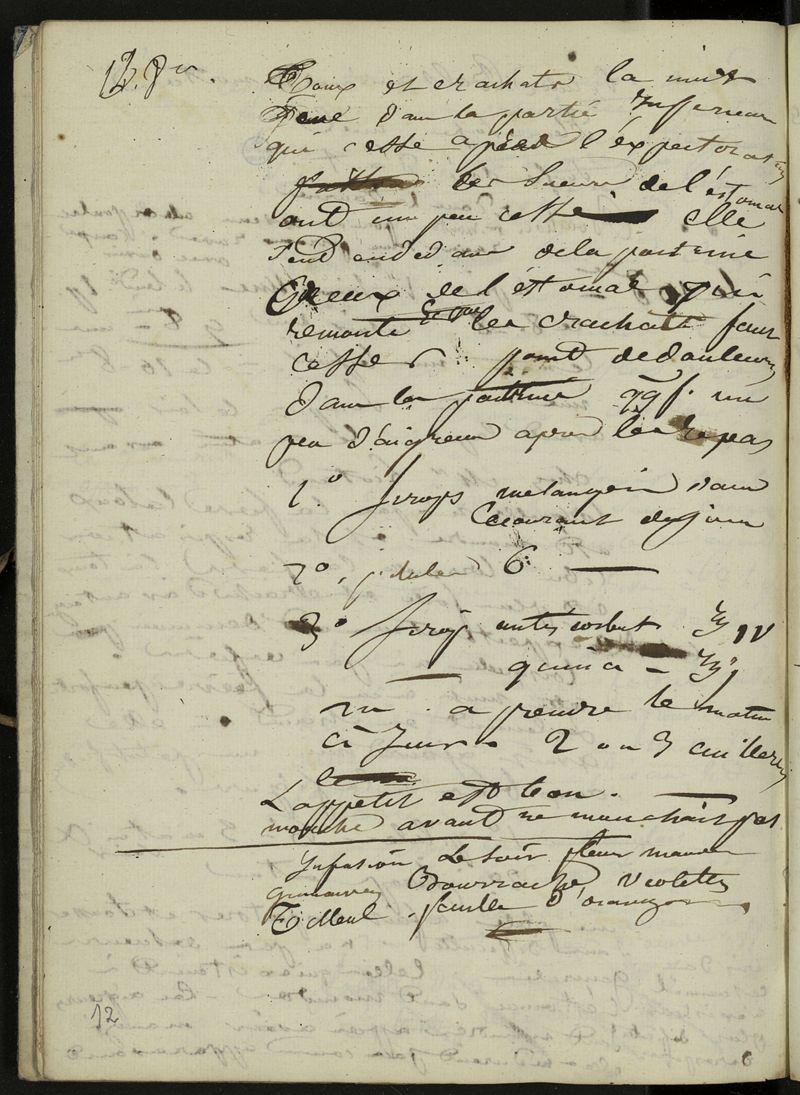 13. 8re.
Toux et crachats la nuit
gene dans la partie Inferieure
qui cesse apres l'éxpectoration
des sueurs de l'éstomac
ont un peu cessé elle
sent en dedans de la poitrine
Creux de l'éstomac qui
remonte les crachats font
cesser point de douleurs
dans la poitrine un
peu d'aigreur apres les repas
1o. Sirops melangés dans
le courant du jour
2o. pilules 6.
3o Sirop antiscorbut ℥ IV
quina — ℥
m. a prendre le matin
à Jeun 2 ou 3 cuillerées
L'appetit est bon.
avant ne manchait pas
Infusion le soir fleurs mauve
guimauve, Bourrache, violettes
Tilleul, feuilles d'oranger
12